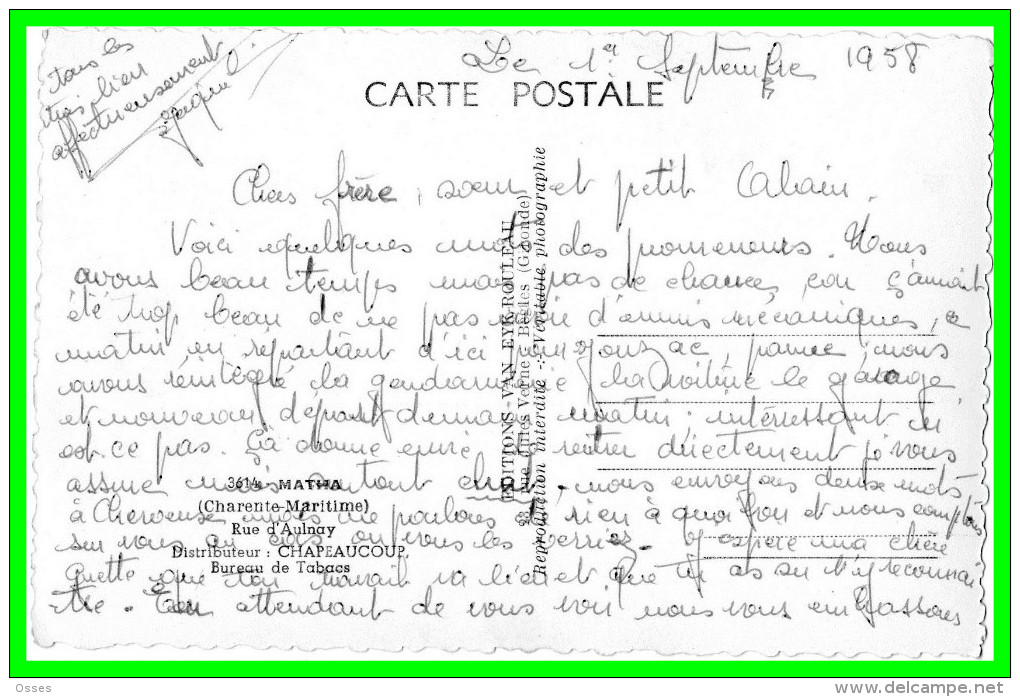 Le 1er Septembre 1958
CARTE POSTALE
Chers frère, soeur et petit
Voici quelques mots des promeneurs. Nous
avons beau temps mais pas de chance, car ç'aurait
été trop beau de ne pas avoir d'ennuis mécaniques, ce
matin en repartant d'ici pour Jonzac, panne, nous
avons réintégré la gendarmerie, la voiture le garage
et nouveau départ demain matin, intéressant n'
est ce pas. Ça donne envie de rentrer directement je vous
assure mais surtout nous envoyons deux mots
à nous ne parlons rien à et nous comptons
sur vous au cas où vous les verriez. J'espère ma chère
que ton travail va bien et que tu as su t'y reconnai
tre. En attendant de vous voir nous vous embrassons
tous les
très bien
affectueusement
3614 MATHA
(Charente-Maritime)
Rue d'Aulnay
Distributeur : CHAPEAUCOUP,
Bureau de Tabacs
EDITIONS VAN EYK-ROULEAU
23, Rue Jules Verne - Bègles (Gironde)
Reproduction interdite -:- Véritable photographie
Osses
www.delcampe.net